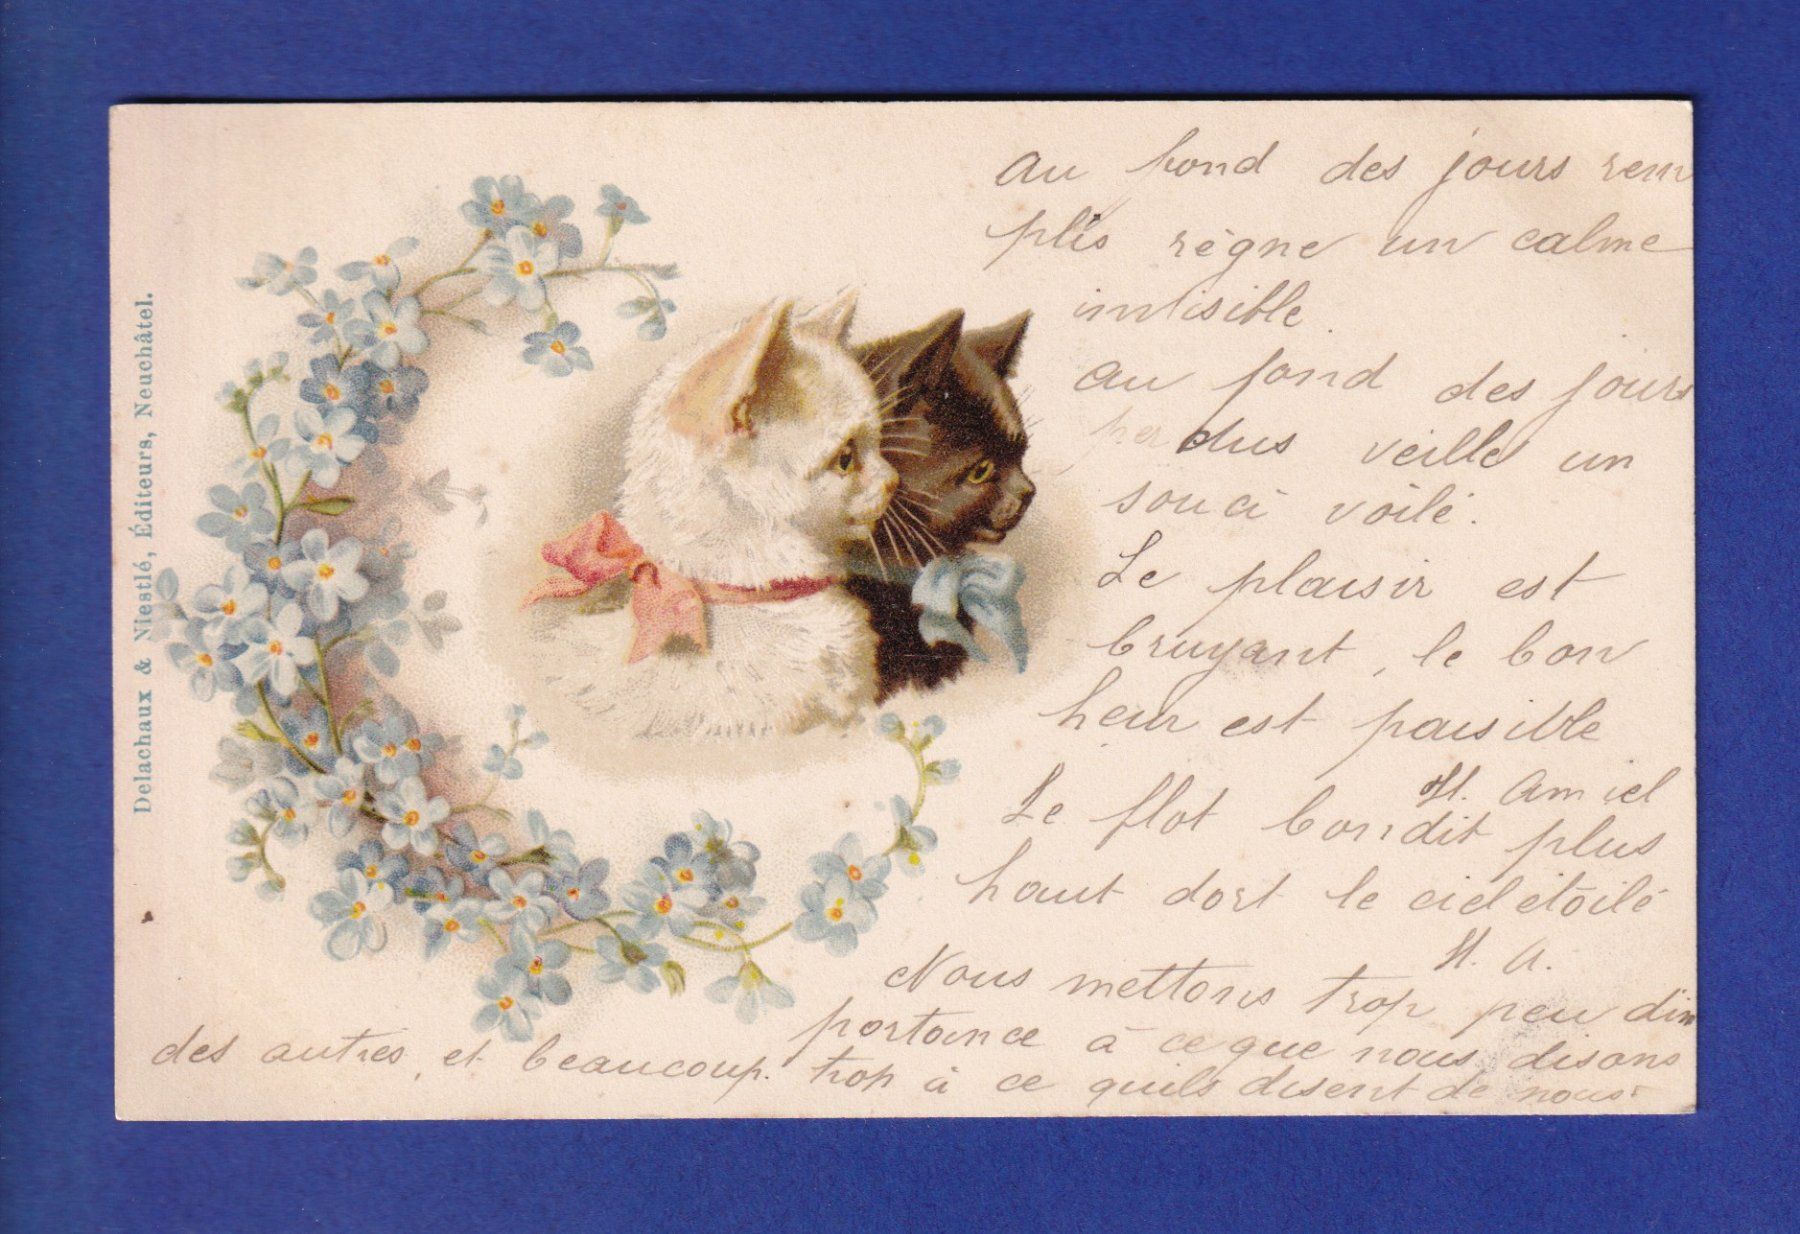 Delachaux & Niestlé, Éditeurs, Neuchâtel.
Au fond des jours rem
plis règne un calme
invisible.
Au fond des jours
perdus veille un
souci voilé.
Le plaisir est
bruyant, le bon
heur est paisible
H. Amiel
Le flot bondit plus
haut dort le ciel étoilé
H. A.
Nous mettons trop peu dim
portance à ce que nous disons
des autres, et beaucoup trop à ce quils disent de nous.